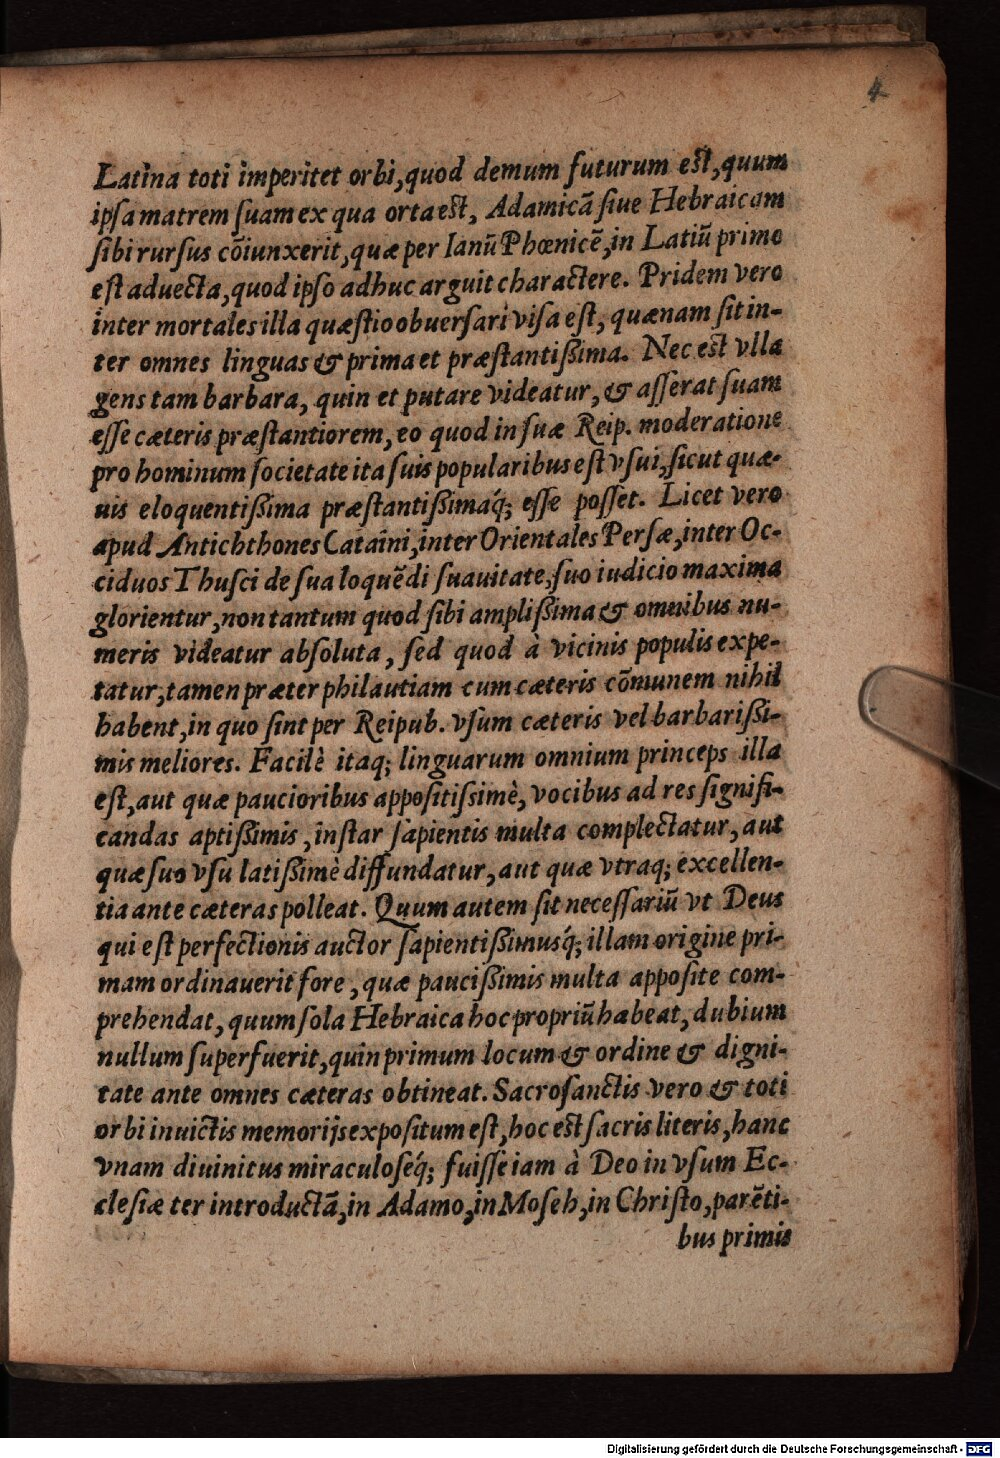 4
Latina toti imperitet orbi, quod demum futurum est, quum
ipsa matrem suam ex qua orta est, Adamicā siue Hebraicam
sibi rursus cōiunxerit, quæ per Ianū Phœnicē, in Latiū primo
est aduecta, quod ipso adhuc arguit charactere. Pridem vero
inter mortales illa quæstio obuersari visa est, quænam sit in-
ter omnes linguas & prima et præstantißima. Nec est vlla
gens tam barbara, quin et putare videatur, & asserat suam
esse cæteris præstantiorem, eo quod in suæ Reip. moderatione
pro hominum societate ita suis popularibus est vsui, sicut quæ-
uis eloquentißima præstantißimáq; esse posset. Licet vero
apud Antichthones Cataini, inter Orientales Persæ, inter Oc-
ciduos Thusci de sua loquēdi suauitate, suo iudicio maxima
glorientur, non tantum quod sibi amplißima & omnibus nu-
meris videatur absoluta, sed quod à vicinis populis expe-
tatur, tamen præter philautiam cum cæteris cōmunem nihil
habent, in quo sint per Reipub. vsum cæteris vel barbarißi-
mis meliores. Facilè itaq; linguarum omnium princeps illa
est, aut quæ paucioribus appositissimè, vocibus ad res signifi-
candas aptißimis, instar sapientis multa complectatur, aut
quæ suo vsu latißimè diffundatur, aut quæ vtraq; excellen-
tia ante cæteras polleat. Quum autem sit necessariū vt Deus
qui est perfectionis auctor sapientißimusq́; illam origine pri-
mam ordinauerit fore, quæ paucißimis multa apposite com-
prehendat, quum sola Hebraica hoc propriū habeat, dubium
nullum superfuerit, quin primum locum & ordine & digni-
tate ante omnes cæteras obtineat. Sacrosanctis vero & toti
orbi inuictis memorijs expositum est, hoc est sacris literis, hanc
vnam diuinitus miraculoséq; fuisse iam à Deo in vsum Ec-
clesiæ ter introductā, in Adamo, in Moseh, in Christo, parēti-
bus primis
Digitalisierung gefördert durch die Deutsche Forschungsgemeinschaft - DFG